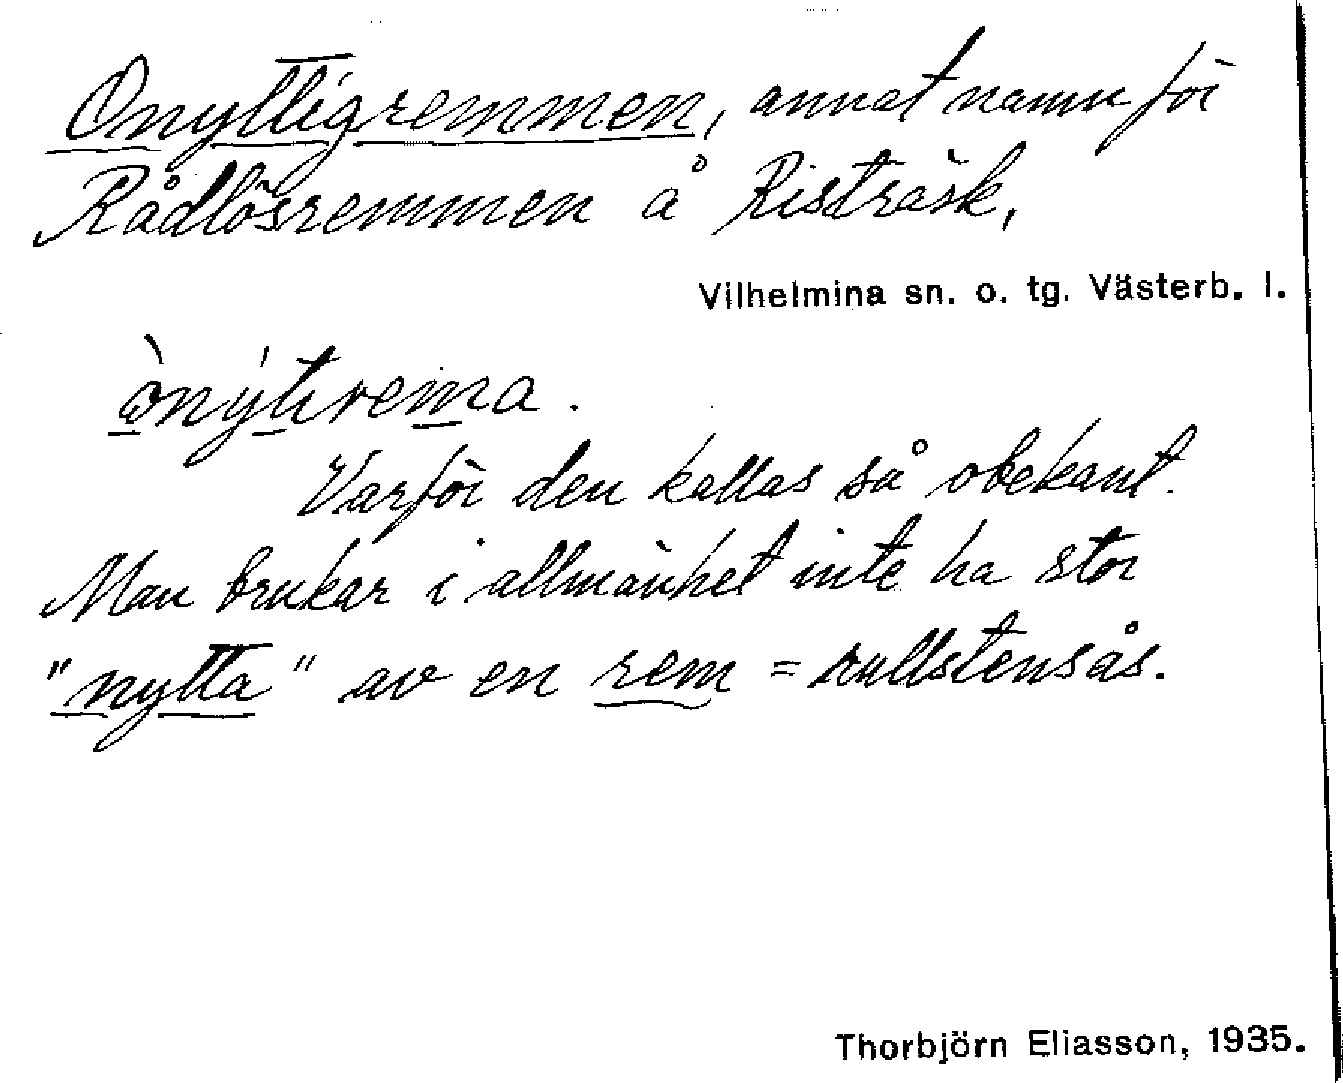 Onyttigremmen, annat namn för
Rådlösremmen å Risträsk,
Vilhelmina sn. o. tg. Västerb. l.
ònýtirema.
Varför den kallas så obekant.
Man brukar i allmänhet inte ha stor
"nytta" av en rem = rullstensås.
Thorbjörn Eliasson, 1935.